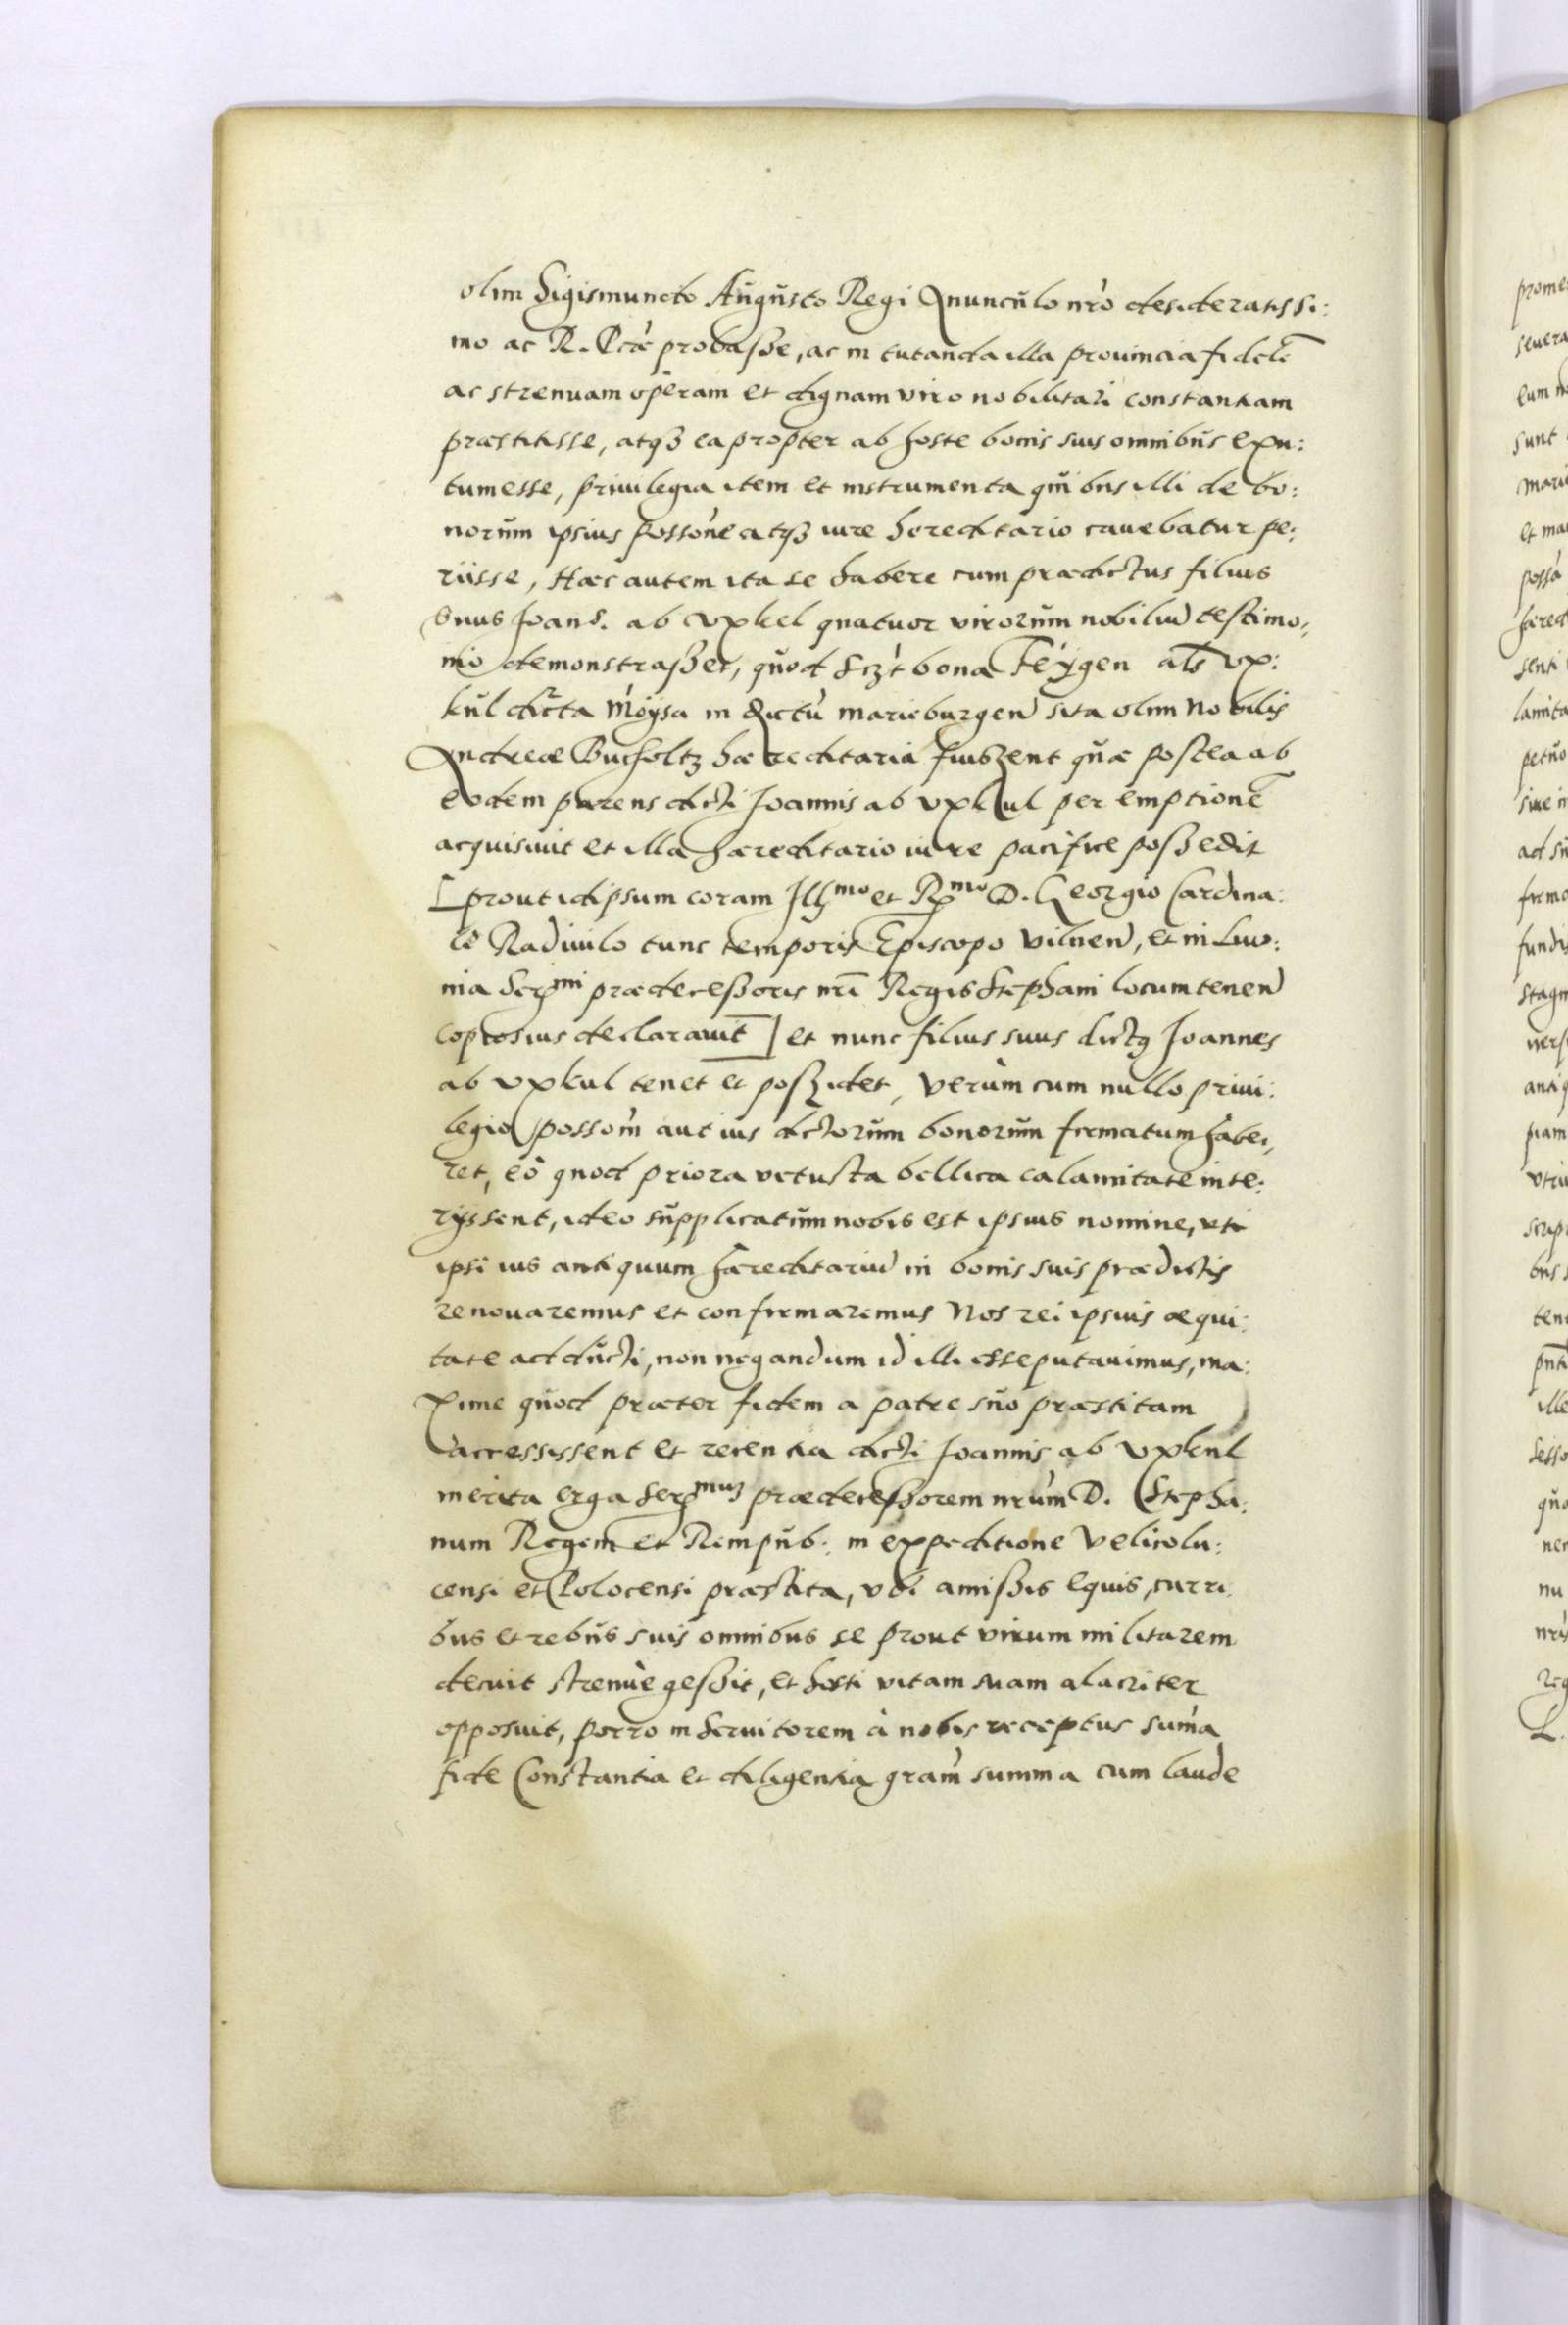 olim Sigismundo Augusto Regi Avunculo nro desideratissi:
mo ac R. Pcæ probasse, ac in tutanda illa provincia fidelē
ac strenuam operam et dignam viro nobilitari constantiam
præstitisse, atq3 ea propter ab hoste bonis suis omnibus exu:
tum esse, privilegia item et instrumenta quibus illi de bo:
norum ipsius possone atq3 iure hereditario cavebatur pe:
riisse, Hæc autem ita se habere cum prædictus filius
suus Joans. ab Vxkel quatuor virorum nobiliu testimo:
nio demonstrasset, quod sczt bona Feÿgen als Vx:
kul dicta Moysa in dictu marieburgen sita olim Nobilis
Andreæ Bucholtz hæreditaria fuissent quæ postea ab
eodem parens dicti Joannis ab Vxkul per emptionē
acquisivit et illa hæreditario iure pacifice possedit
[prout id ipsum coram Illmo et Rmo D. Georgio Cardina:
le Radivilo tunc temporis Episcopo Vilnen, et in Livo:
nia Sermi prædecessoris nri Regis Stephani locum tenen
copiosius declaravit] et nunc filius suus dictus Joannes
ab Vxkul tenet et possidet, Verùm cum nullo privi:
legio possom aut ius dictorum bonorum firmatum habe:
ret, eò quod priora vetusta bellica calamitate inte:
rijssent, ideo supplicatum nobis est ipsius nomine, uti
ipsi ius antiquum hæreditariu in bonis suis prædictis
renovaremus et confirmaremus Nos rei ipsius æqui:
tate adducti, non negandum id illi esse putavimus, ma:
xime quod præter fidem a patre suo præstitam
accessissent et recentia dicti Joannis ab Vxkul
merita erga Sermus prædecessorem nrum D. Stepha:
num Regem et Rempub: in expeditione Velicolu:
censi et Polocensi præstita, ubi amissis equis, curri:
bus et rebus suis omnibus se prout virum militarem
decuit strenuè gessit, et hosti vitam suam alacriter
opposuit, porro in servitorem à nobis receptus suma
fide Constantia et diligentia gram summa cum laude